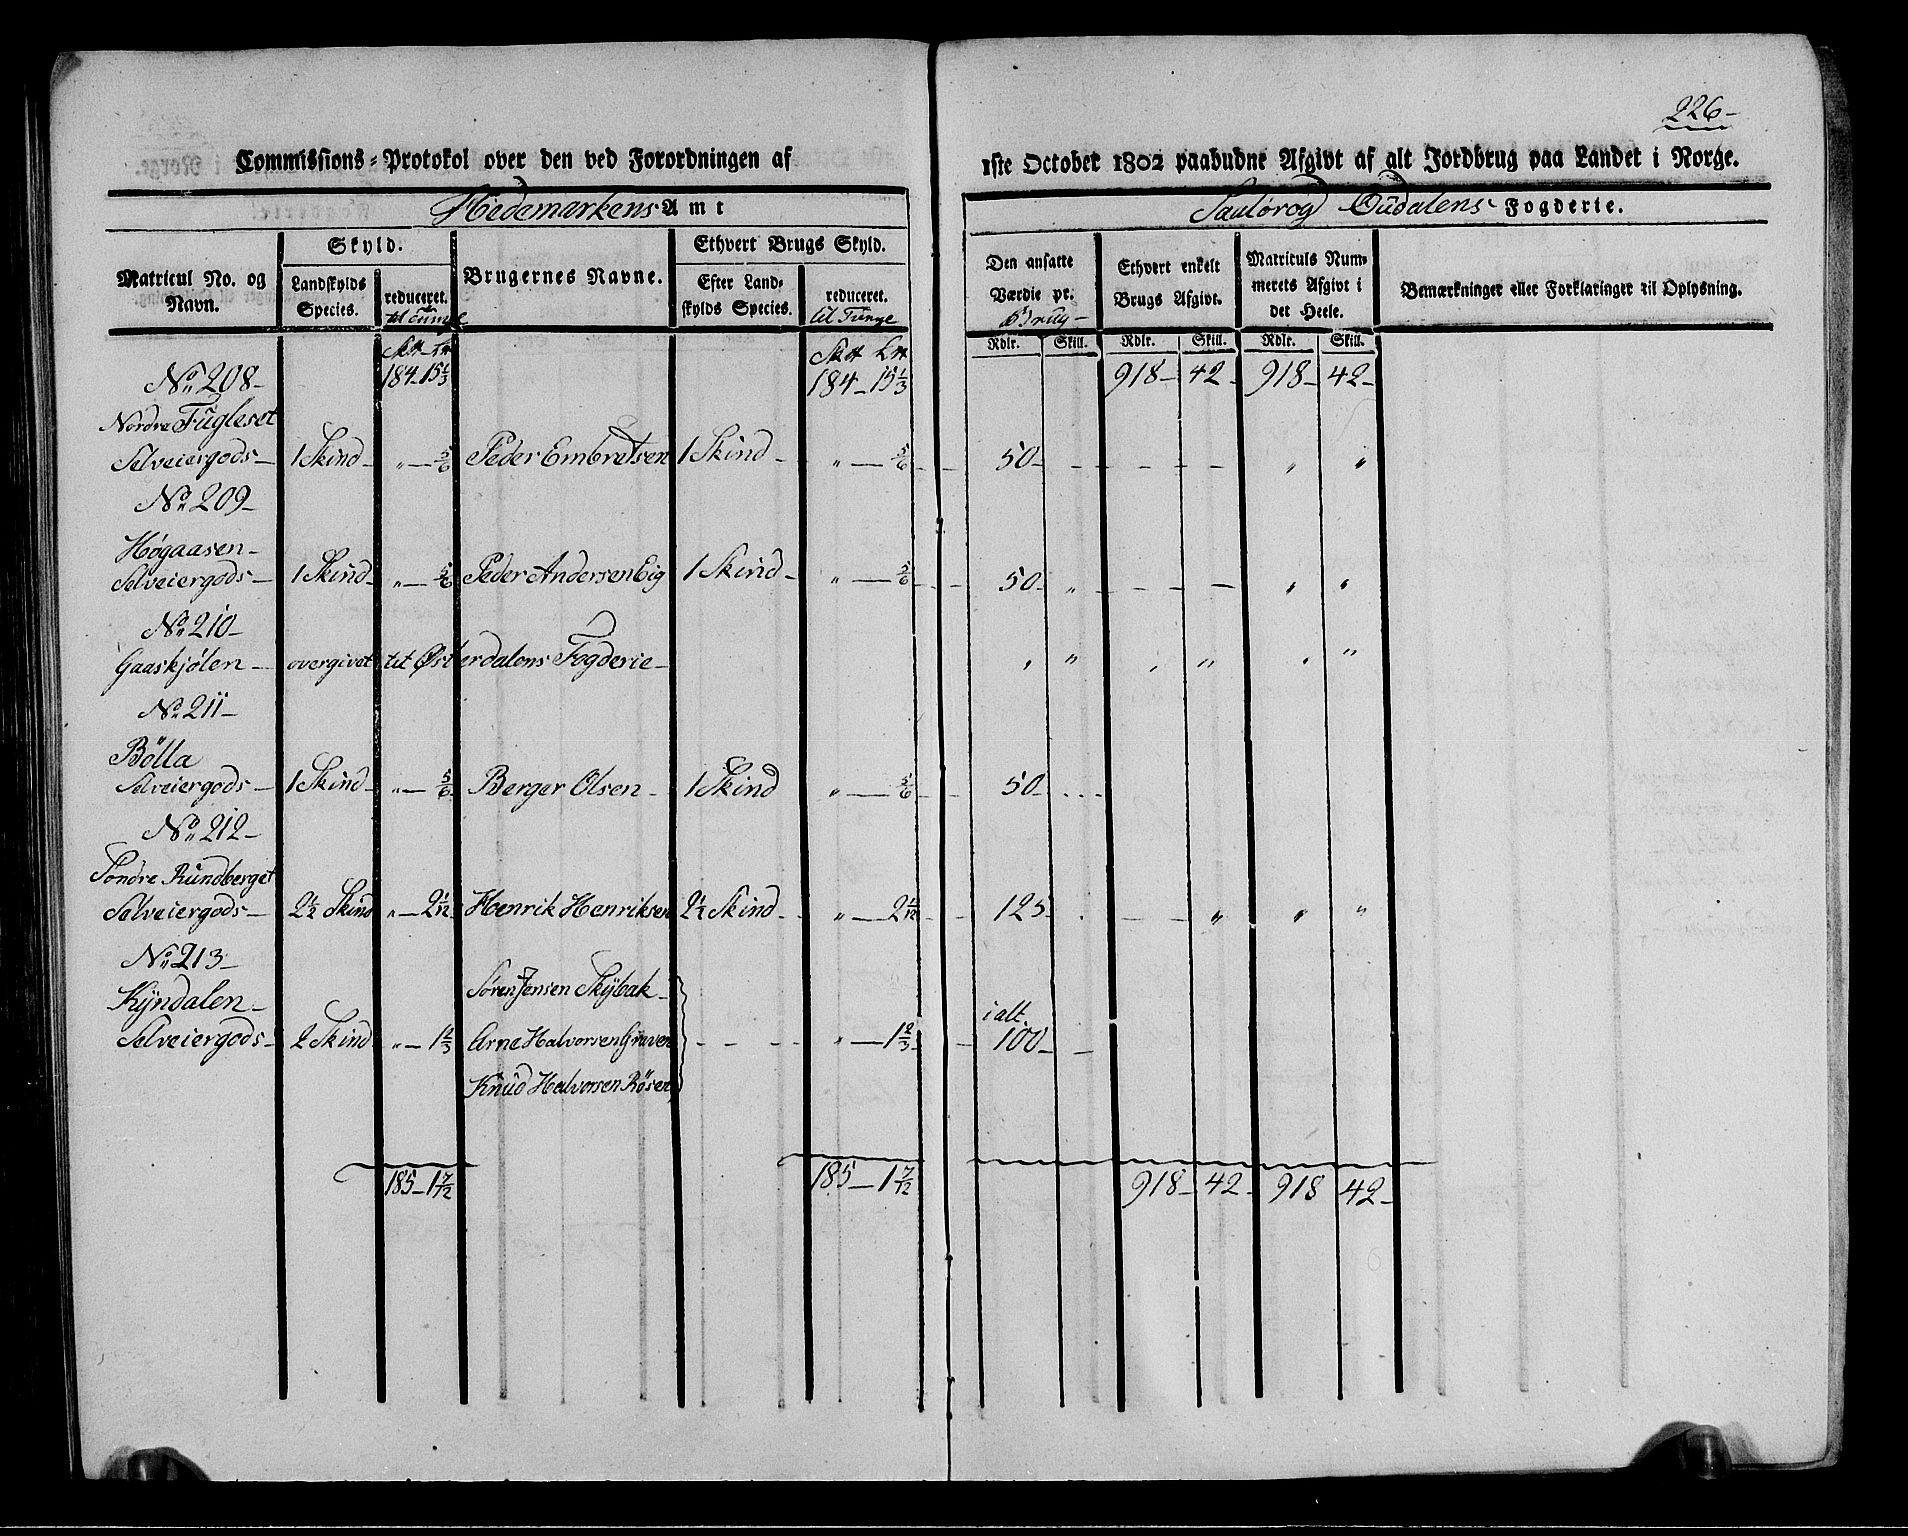 226-
Commissions-Protokol over den ved Forordningen af 1ste October 1802 paabudne Afgivt af alt Jordbrug paa Landet i Norge.
Hedemarkens Amt Soulør og Oudalens Fogderie.
Matricul No. og Navn. Skyld. Brugernes Navne. Ethvert Brugs Skyld. Den ansatte Værdie pr. Brug- Ethvert enkelt Brugs Afgivt. Matriculs Nummerets Afgivt i det Heele. Bemærkninger eller Forklaringer til Oplysning.
Landskylds Species. reduceret. til Tunge Efter Landskylds Species. reduceret. til Tunge
Rdlr. Skill. Rdlr. Skill. Rdlr. Skill.
No 208- 184-15 1/3 184-15 1/3 918- 42- 918- 42-
Nordre Fugleset
Selveiergods- 1 Skind- „- 5/6 Peder Embretsen 1 Skind- „- 5/6 50- „ „
No 209-
Høgaasen-
Selveiergods- 1 Skind- „- 5/6 Peder Andersen Eig 1 Skind- „- 5/6 50- „ „ „
No 210-
Gaaskjølen- overgivet til Østerdalens Fogderie- „ „ „ „ „ „
No 211-
Bölla
Selveiergods- 1 Skind- „- 5/6 Berger Olsen- 1 Skind „- 5/6 50-
No 212-
Søndre Rundberget
Selveiergods- 2 1/2 Skind „- 2 1/12 Henrik Henriksen 2 1/2 Skind- „- 2 1/12 125- „ „ „
No 213-
Kyndalen- Søren Jensen Skybak- i alt
Selveiergods- 2 Skind „- 1 2/3 Arne Halvorsen Graven „- 1 2/3 100-
Knud Halvorsen Rösen
185-1 7/12 185-1 7/12 918- 42- 918 42-